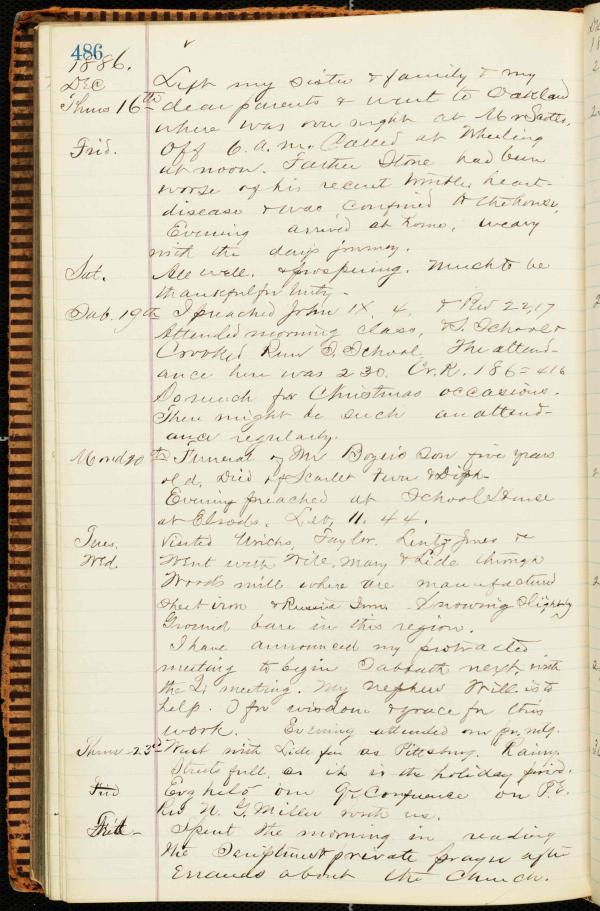 486
1886.
Dec Left my sister & family & my
Thurs 16th dear parents & went to Oakland
where was over night at Mr Scotts,
Frid. Off 6. a.m. Called at Wheeling
at noon. Father Stone had been
worse of his recent trouble, heart-
disease & was confined to the house,
Evening arrived at home, weary
with the days journey.
Sat. All well. & prospering. Much to be
thankful for
Sab. 19th I preached John IX. 4, & Rev 22,17
Attended morning class, S. School &
Crooked Run S. School. The attend-
ance here was 230. Cr. R. 186 = 416
So much for Christmas occasions.
There might be such an attend-
ance regularly.
Mond 20th Funeral of Mr son five years
old, Died of Scarlet Fever & Diph-
Evening preached at School House
at Lev. 11. 44.
Tues. Visited Taylor, Lentz Jones &
Wed. Went with Will, Mary & Lide through
Woods mill where are manufactured
sheet iron & Russia Iron. Snowing slightly
Ground bare in this region.
I have announced my protracted
meeting to begin Sabbath next, with
the Qr meeting. My nephew Will is to
help. O for wisdom & grace for this
work. Evening attended our pr, mtg.
Thurs 23d Went with Lide far as Pittsburg. Rainy.
Streets full, as it is the holiday
Frid Evg held our Qr Conference on P.E.
Rev N. G. Miller with us.
Spent the morning in reading
the Scriptures & private prayer after
Errands about the Church.